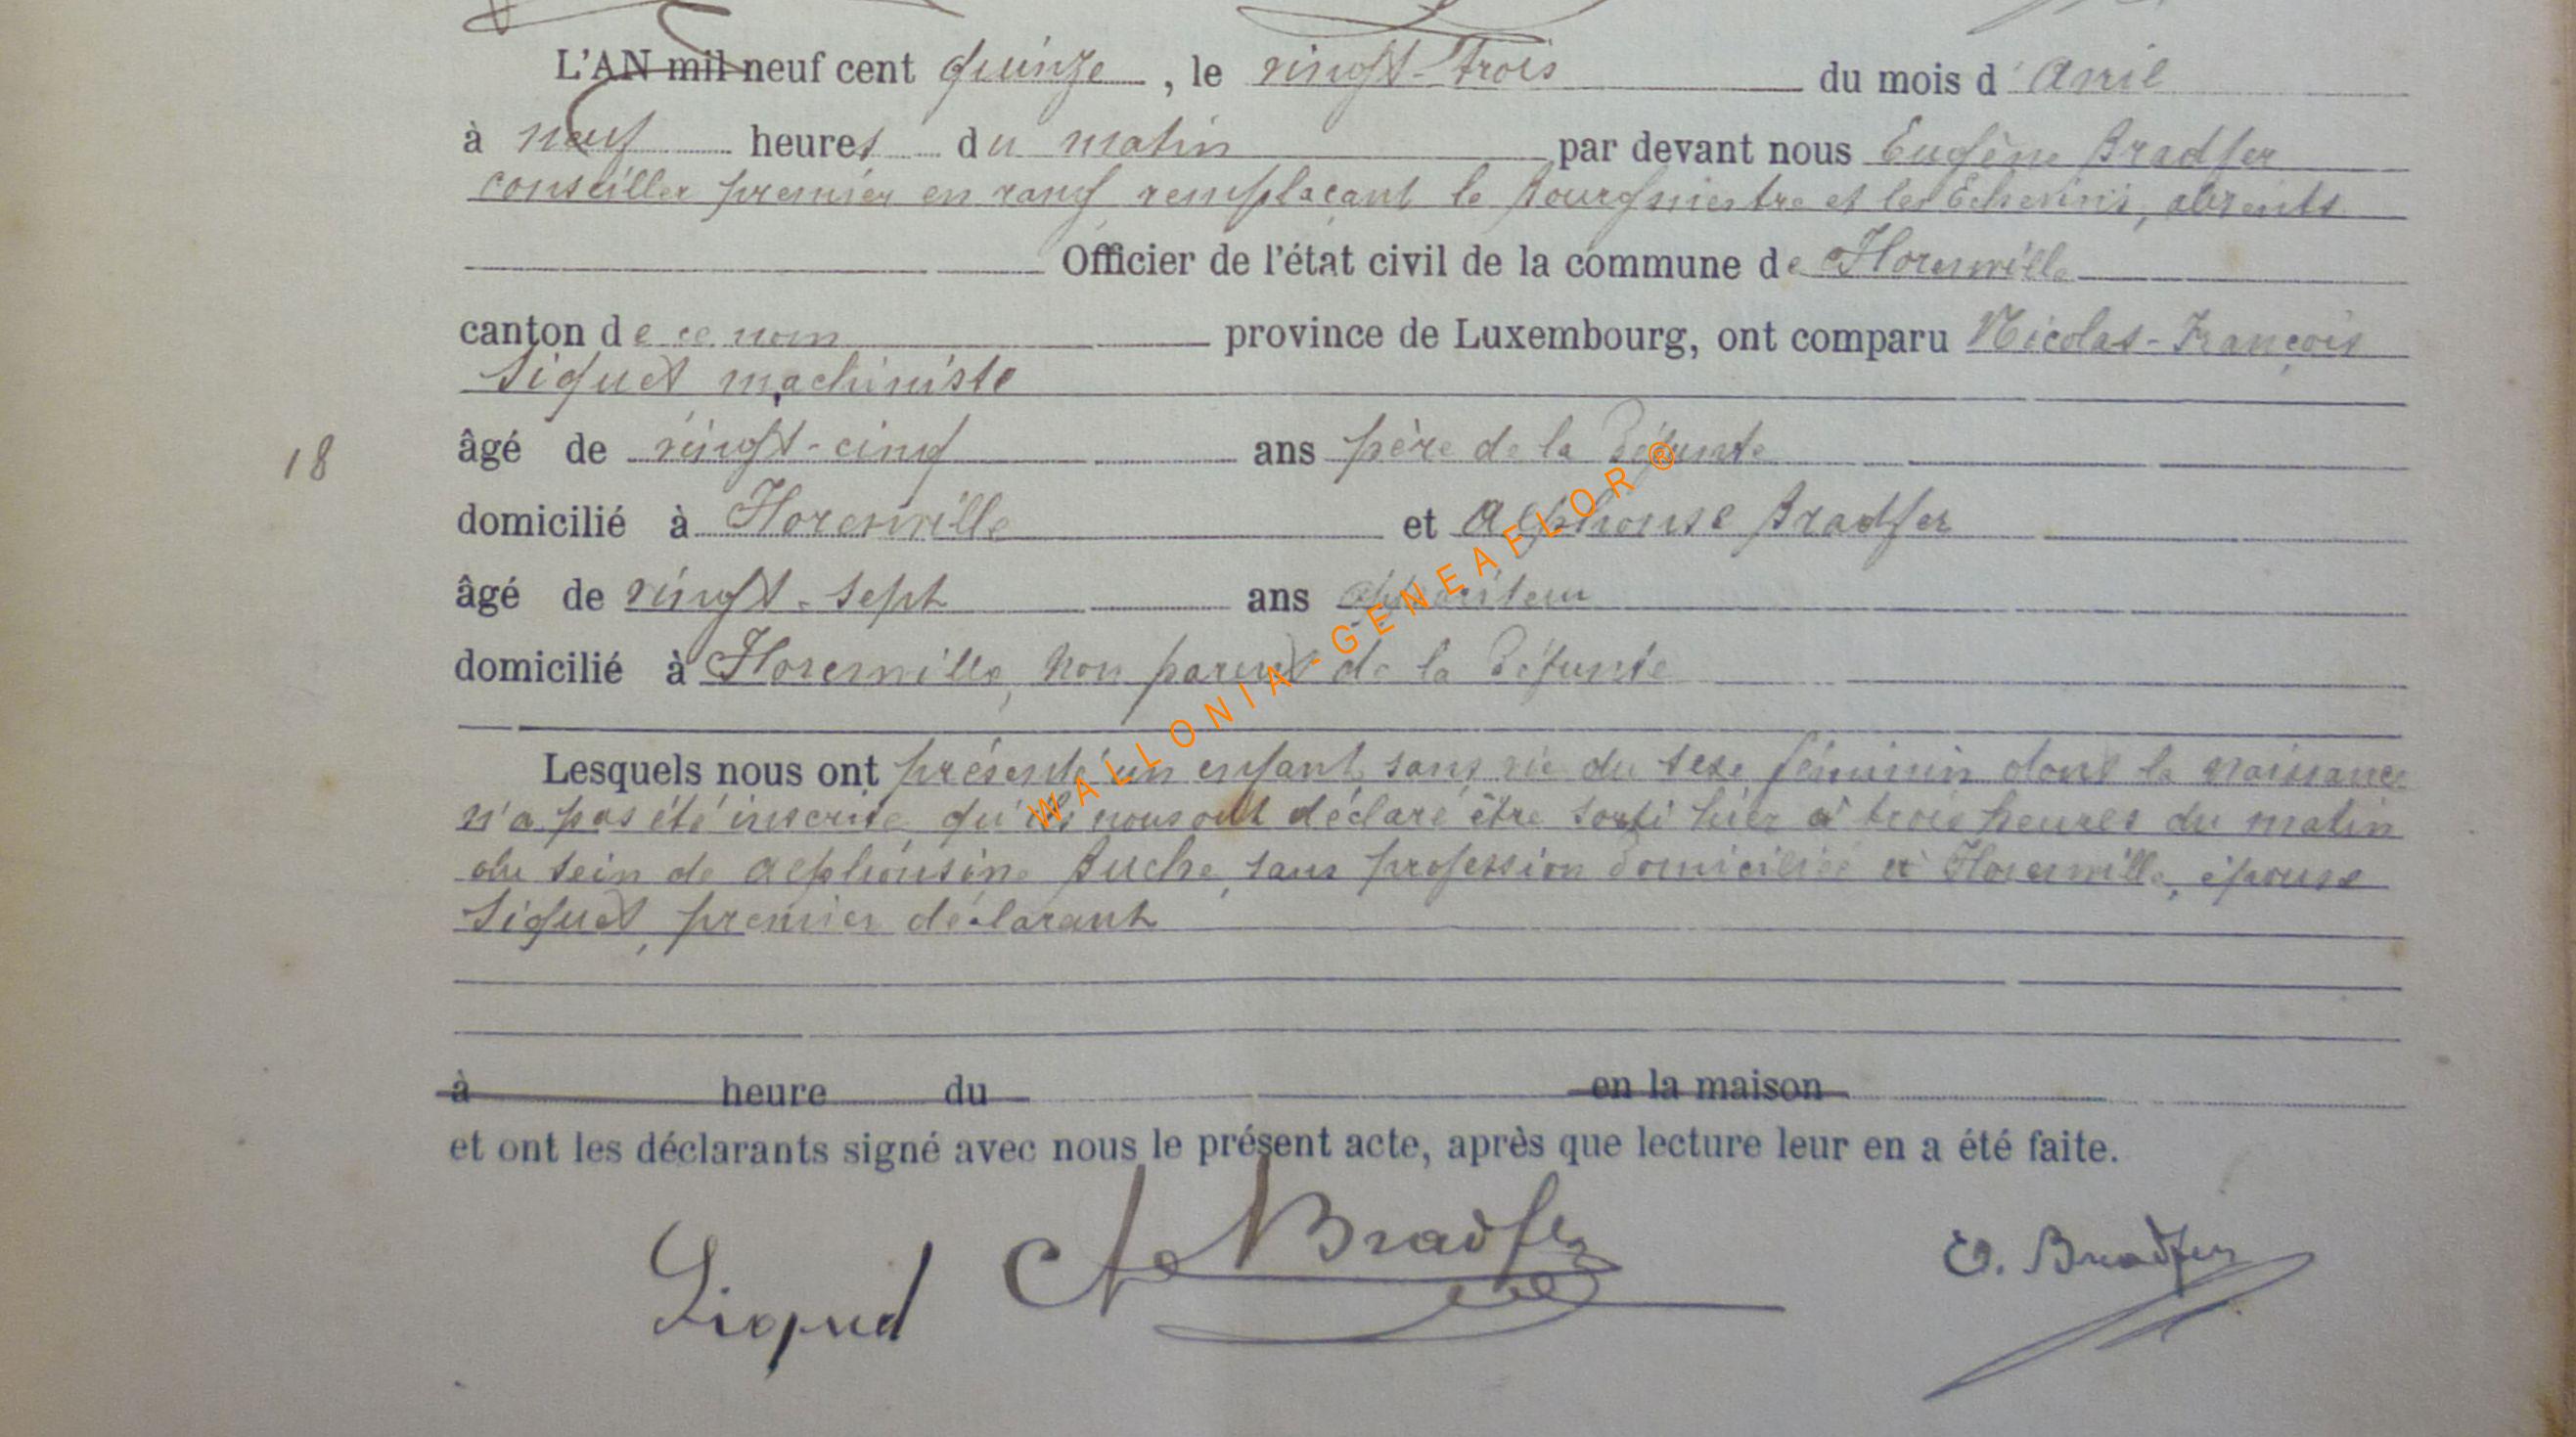 L'AN mil neuf cent quinze, le vingt-trois du mois d'avril
à neuf heures du matin par devant nous Eugène Bradfer
conseiller premier en rang remplaçant le bourgmestre et les Echevins, absents
Officier de l'état civil de la commune de Florenville
canton de ce nom province de Luxembourg, ont comparu Nicolas-François
Siquet machiniste
18 âgé de vingt-cinq ans père de la défunte
domicilié à Florenville et Alphonse Bradfer
âgé de vingt-sept ans appariteur
domicilié à Florenville, non parent de la défunte
WALLONIA-GENEAFLOR®
Lesquels nous ont présenté un enfant sans vie du sexe féminin dont la naissance
n'a pas été inscrite, qu'ils nous ont déclaré être sorti hier à trois heures du matin
du sein de Alphonsine Puche, sans profession domiciliée à Florenville, épouse
Siquet, premier déclarant
à heure du en la maison
et ont les déclarants signé avec nous le présent acte, après que lecture leur en a été faite.
Siquet A Bradfer E. Bradfer